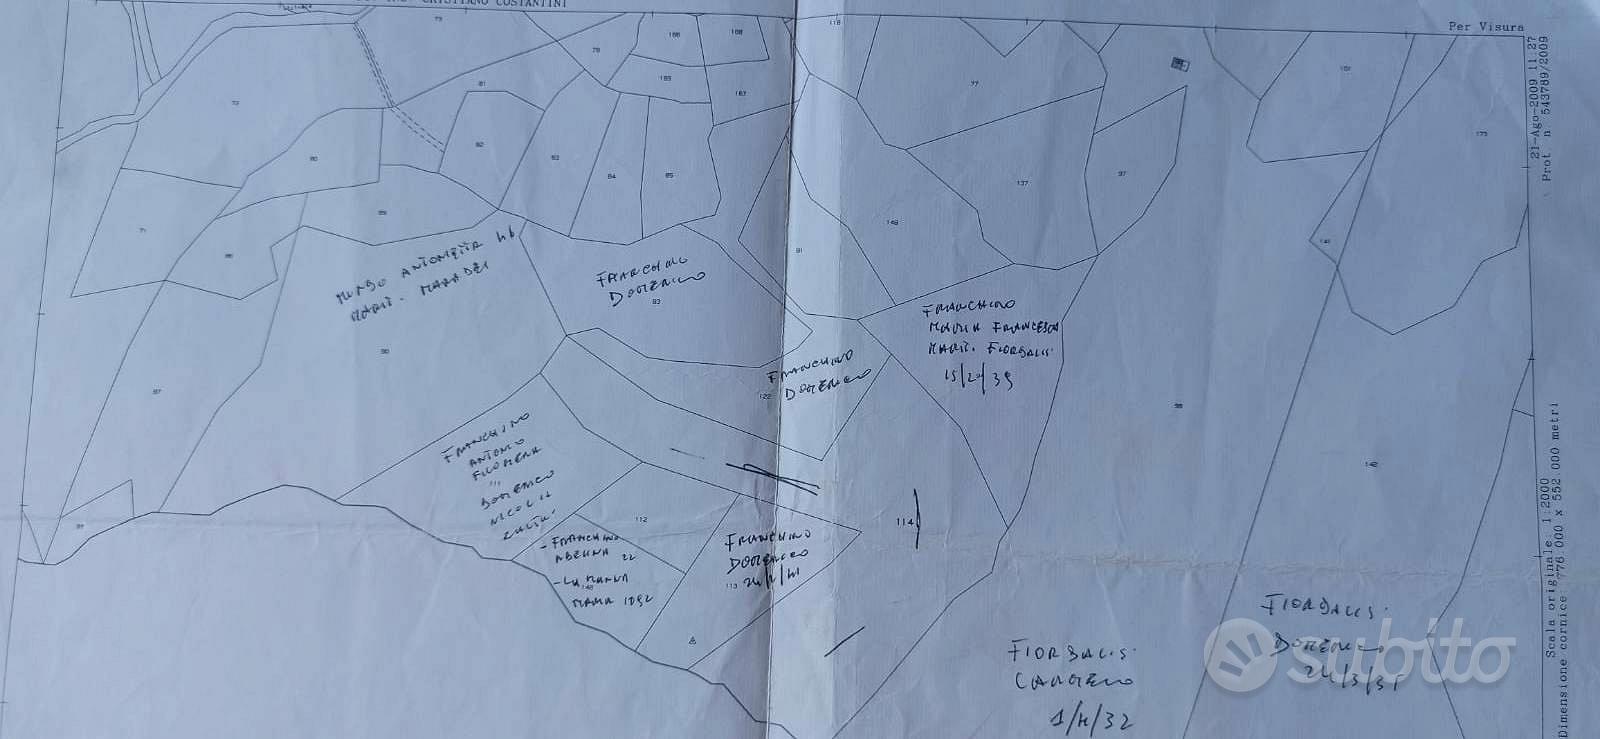 CRISTIANO COSTANTINI
Per Visura
73
118
166
168
78
77
151
169
81
167
72
173
82
80
83
84
85
137
97
89
148
71
91
86
141
MARIT. MARADEI
FRANCHINO
DOMENICO
93
FRANCHINO
MARIA FRANCESCA
MARIT. FIORDALIS.
15/20/39
90
FRANCHINO
DOMENICO
122
87
98
142
FRANCHINO
ANTONIO
FILOMENA
DOMENICO
NICOLA
112
114
- FRANCHINO
22
- LA MANNA
MARIA 1892
FRANCHINO
DOMENICO
113
FIORDALIS.
CARMELO
1/4/32
FIORDALIS.
DOMENICO
24/3/31
subito
21-Ago-2009 11:27
Prot. n. 543789/2009
Scala originale: 1:2000
Dimensione cornice: 776.000 x 552.000 metri